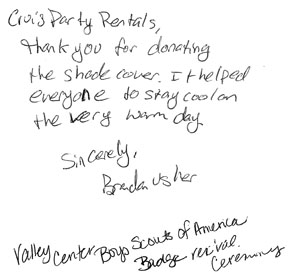 Party Rentals,
Thank you for donating
the shade cover. It helped
everyone to stay cool on
the very warm day.
Sincerely,
Brendan Usher
Valley Center Boys Scouts of America
Badge
Ceremony